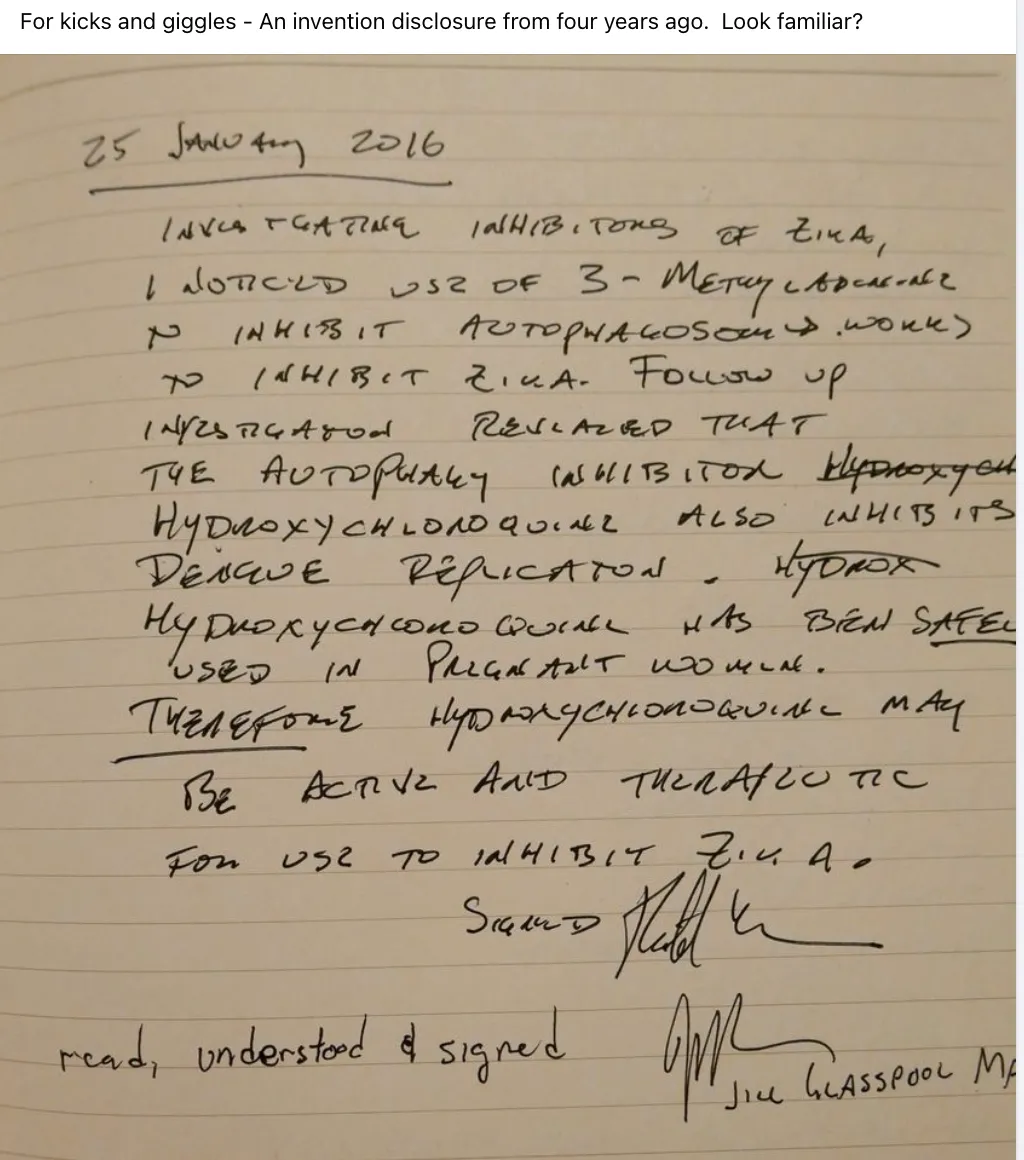 For kicks and giggles - An invention disclosure from four years ago. Look familiar?
25 January 2016
INVESTIGATING INHIBITORS OF ZIKA,
I NOTICED USE OF 3-METHYLADENINE
TO INHIBIT AUTOPHAGOSOME WORKS
TO INHIBIT ZIKA. FOLLOW UP
INVESTIGATION REVEALED THAT
THE AUTOPHAGY INHIBITOR HYDROXYCH
HYDROXYCHLOROQUINE ALSO INHIBITS
DENGUE REPLICATION. HYDROX
HYDROXYCHLOROQUINE HAS BEEN SAFEL
USED IN PREGNANT WOMEN.
THEREFORE HYDROXYCHLOROQUINE MAY
BE ACTIVE AND THERAPEUTIC
FOR USE TO INHIBIT ZIKA.
SIGNED
read, understood & signed
JILL GLASSPOOL MA